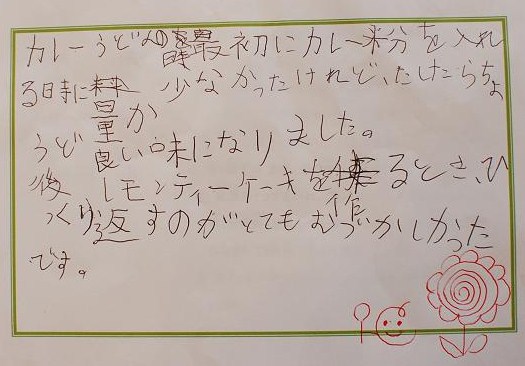 カレーうどんの最初にカレー粉を入れ
る時に量が少なかったけれど、たしたらちょ
うど良い味になりました。
後レモンティーケーキを作るとき、ひ
っくり返すのがとてもむづかしかった
です。